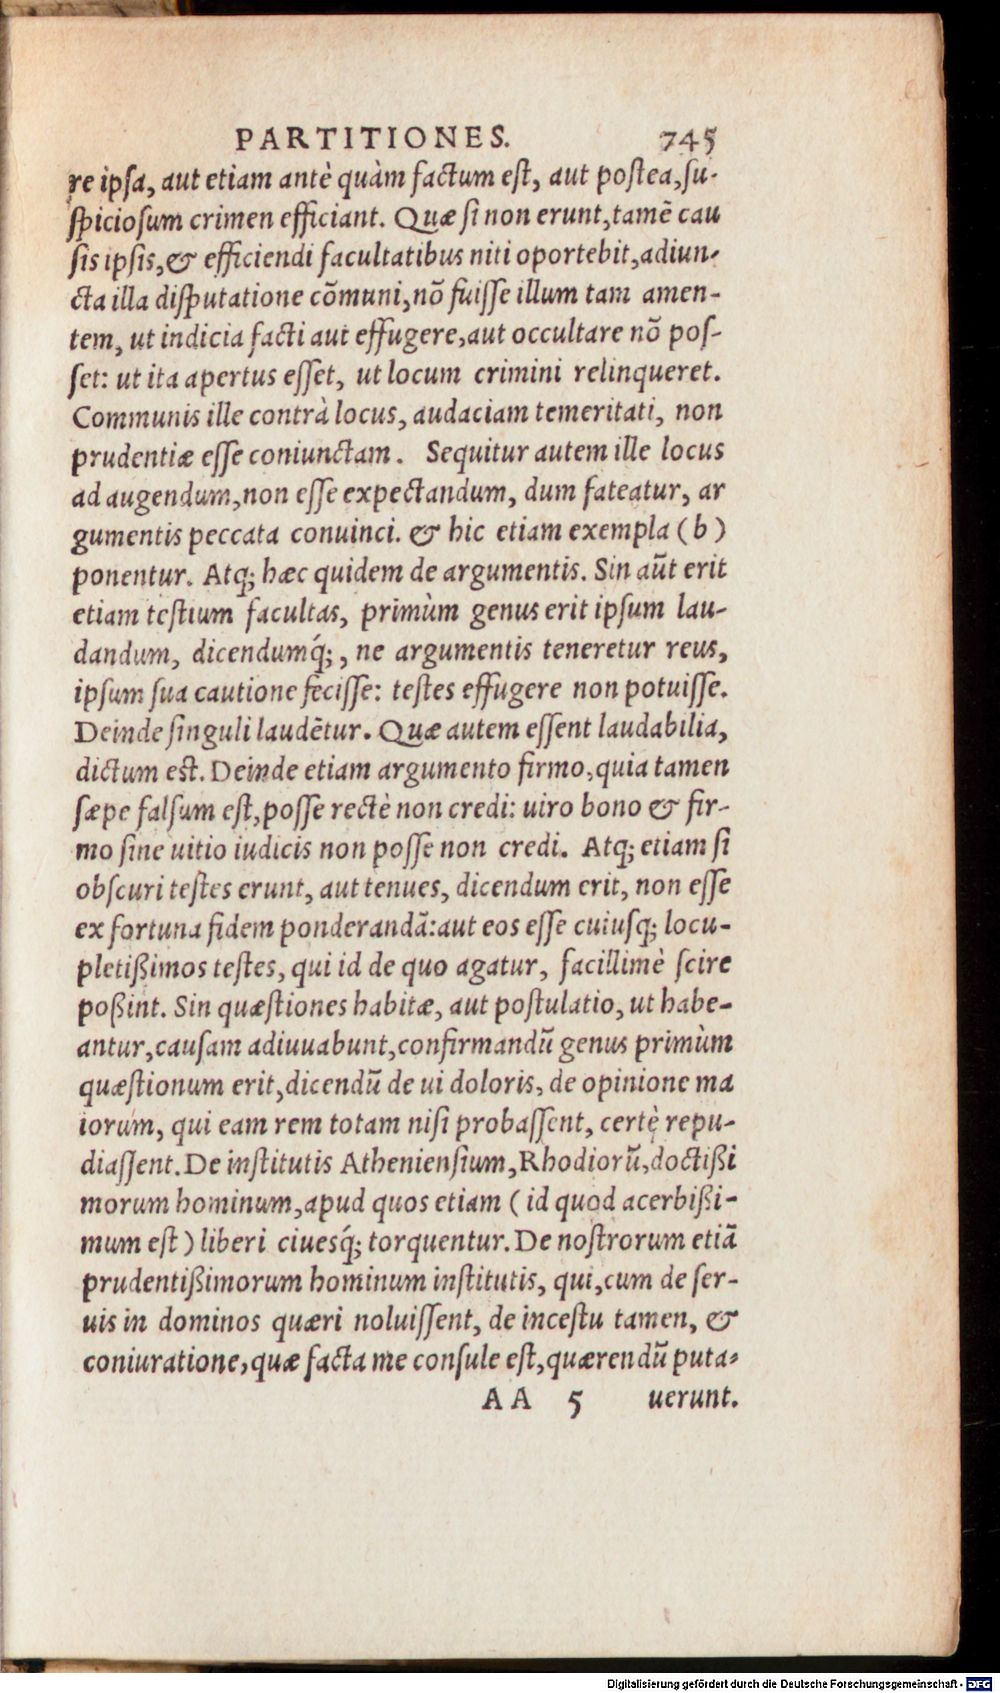 PARTITIONES. 745
re ipsa, aut etiam antè quàm factum est, aut postea, su-
spiciosum crimen efficiant. Quæ si non erunt, tamē cau
sis ipsis, & efficiendi facultatibus niti oportebit, adiun-
cta illa disputatione cōmuni, nō fuisse illum tam amen-
tem, ut indicia facti aut effugere, aut occultare nō pos-
set: ut ita apertus esset, ut locum crimini relinqueret.
Communis ille contrà locus, audaciam temeritati, non
prudentiæ esse coniunctam. Sequitur autem ille locus
ad augendum, non esse expectandum, dum fateatur, ar
gumentis peccata conuinci. & hic etiam exempla (b)
ponentur. Atq; hæc quidem de argumentis. Sin aūt erit
etiam testium facultas, primùm genus erit ipsum lau-
dandum, dicendumq́;, ne argumentis teneretur reus,
ipsum sua cautione fecisse: testes effugere non potuisse.
Deinde singuli laudētur. Quæ autem essent laudabilia,
dictum est. Deinde etiam argumento firmo, quia tamen
sæpe falsum est, posse rectè non credi: uiro bono & fir-
mo sine uitio iudicis non posse non credi. Atq; etiam si
obscuri testes erunt, aut tenues, dicendum erit, non esse
ex fortuna fidem ponderandā: aut eos esse cuiusq; locu-
pletißimos testes, qui id de quo agatur, facillimè scire
poßint. Sin quæstiones habitæ, aut postulatio, ut habe-
antur, causam adiuuabunt, confirmandū genus primùm
quæstionum erit, dicendū de ui doloris, de opinione ma
iorum, qui eam rem totam nisi probassent, certè repu-
diassent. De institutis Atheniensium, Rhodiorū, doctißi
morum hominum, apud quos etiam (id quod acerbißi-
mum est) liberi ciuesq́; torquentur. De nostrorum etiā
prudentißimorum hominum institutis, qui, cum de ser-
uis in dominos quæri noluissent, de incestu tamen, &
coniuratione, quæ facta me consule est, quærendū puta-
AA 5 uerunt.
Digitalisierung gefördert durch die Deutsche Forschungsgemeinschaft - DFG